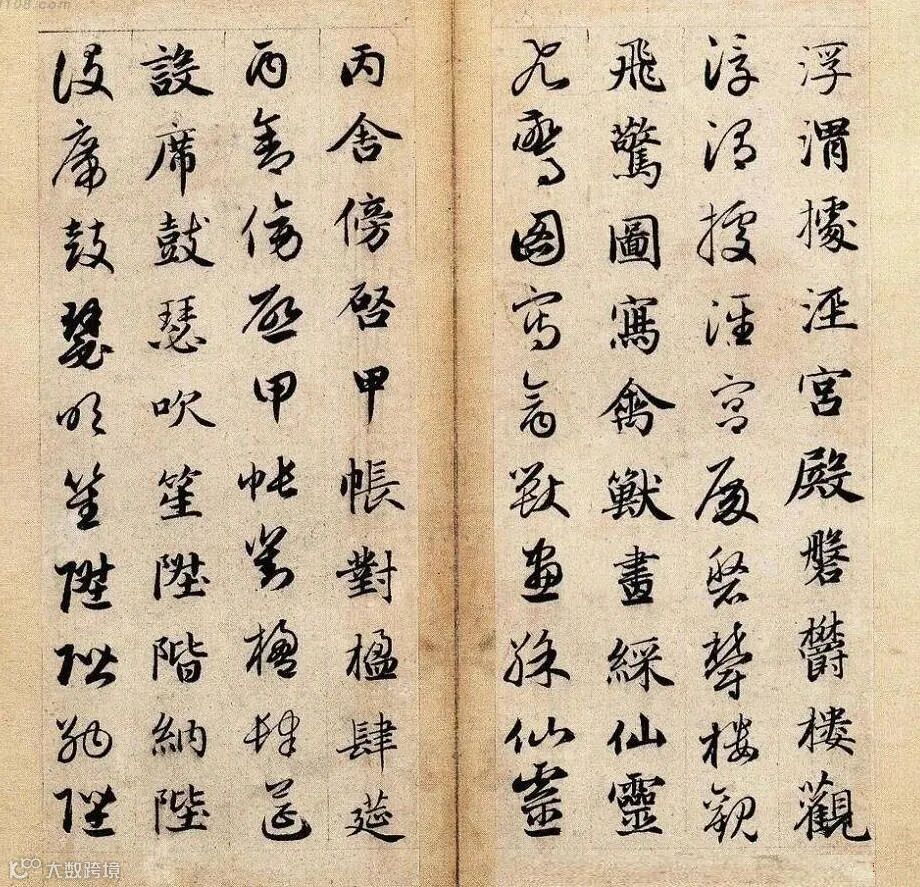 浮渭據涇宮殿磐欝樓觀
浮渭據涇宮殿磐欝樓觀
飛驚圖寫禽獸畫綵仙靈
飛驚圖寫禽獸畫綵仙靈
丙舍傍啓甲帳對楹肆筵
丙舍傍啓甲帳對楹肆筵
設席鼓瑟吹笙陞階納陛
設席鼓瑟吹笙陞階納陛
大数跨境